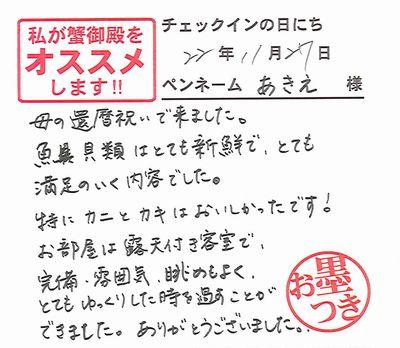 私が蟹御殿を
オススメ
します!!
チェックインの日にち
22年11月27日
ペンネーム あきえ 様
母の還暦祝いで来ました。
魚貝類はとても新鮮で、とても
満足のいく内容でした。
特にカニとカキはおいしかったです!
お部屋は露天付き客室で、
完備・雰囲気、眺めもよく、
とてもゆっくりした時を過すことが
できました。ありがとうございました。
お墨つき